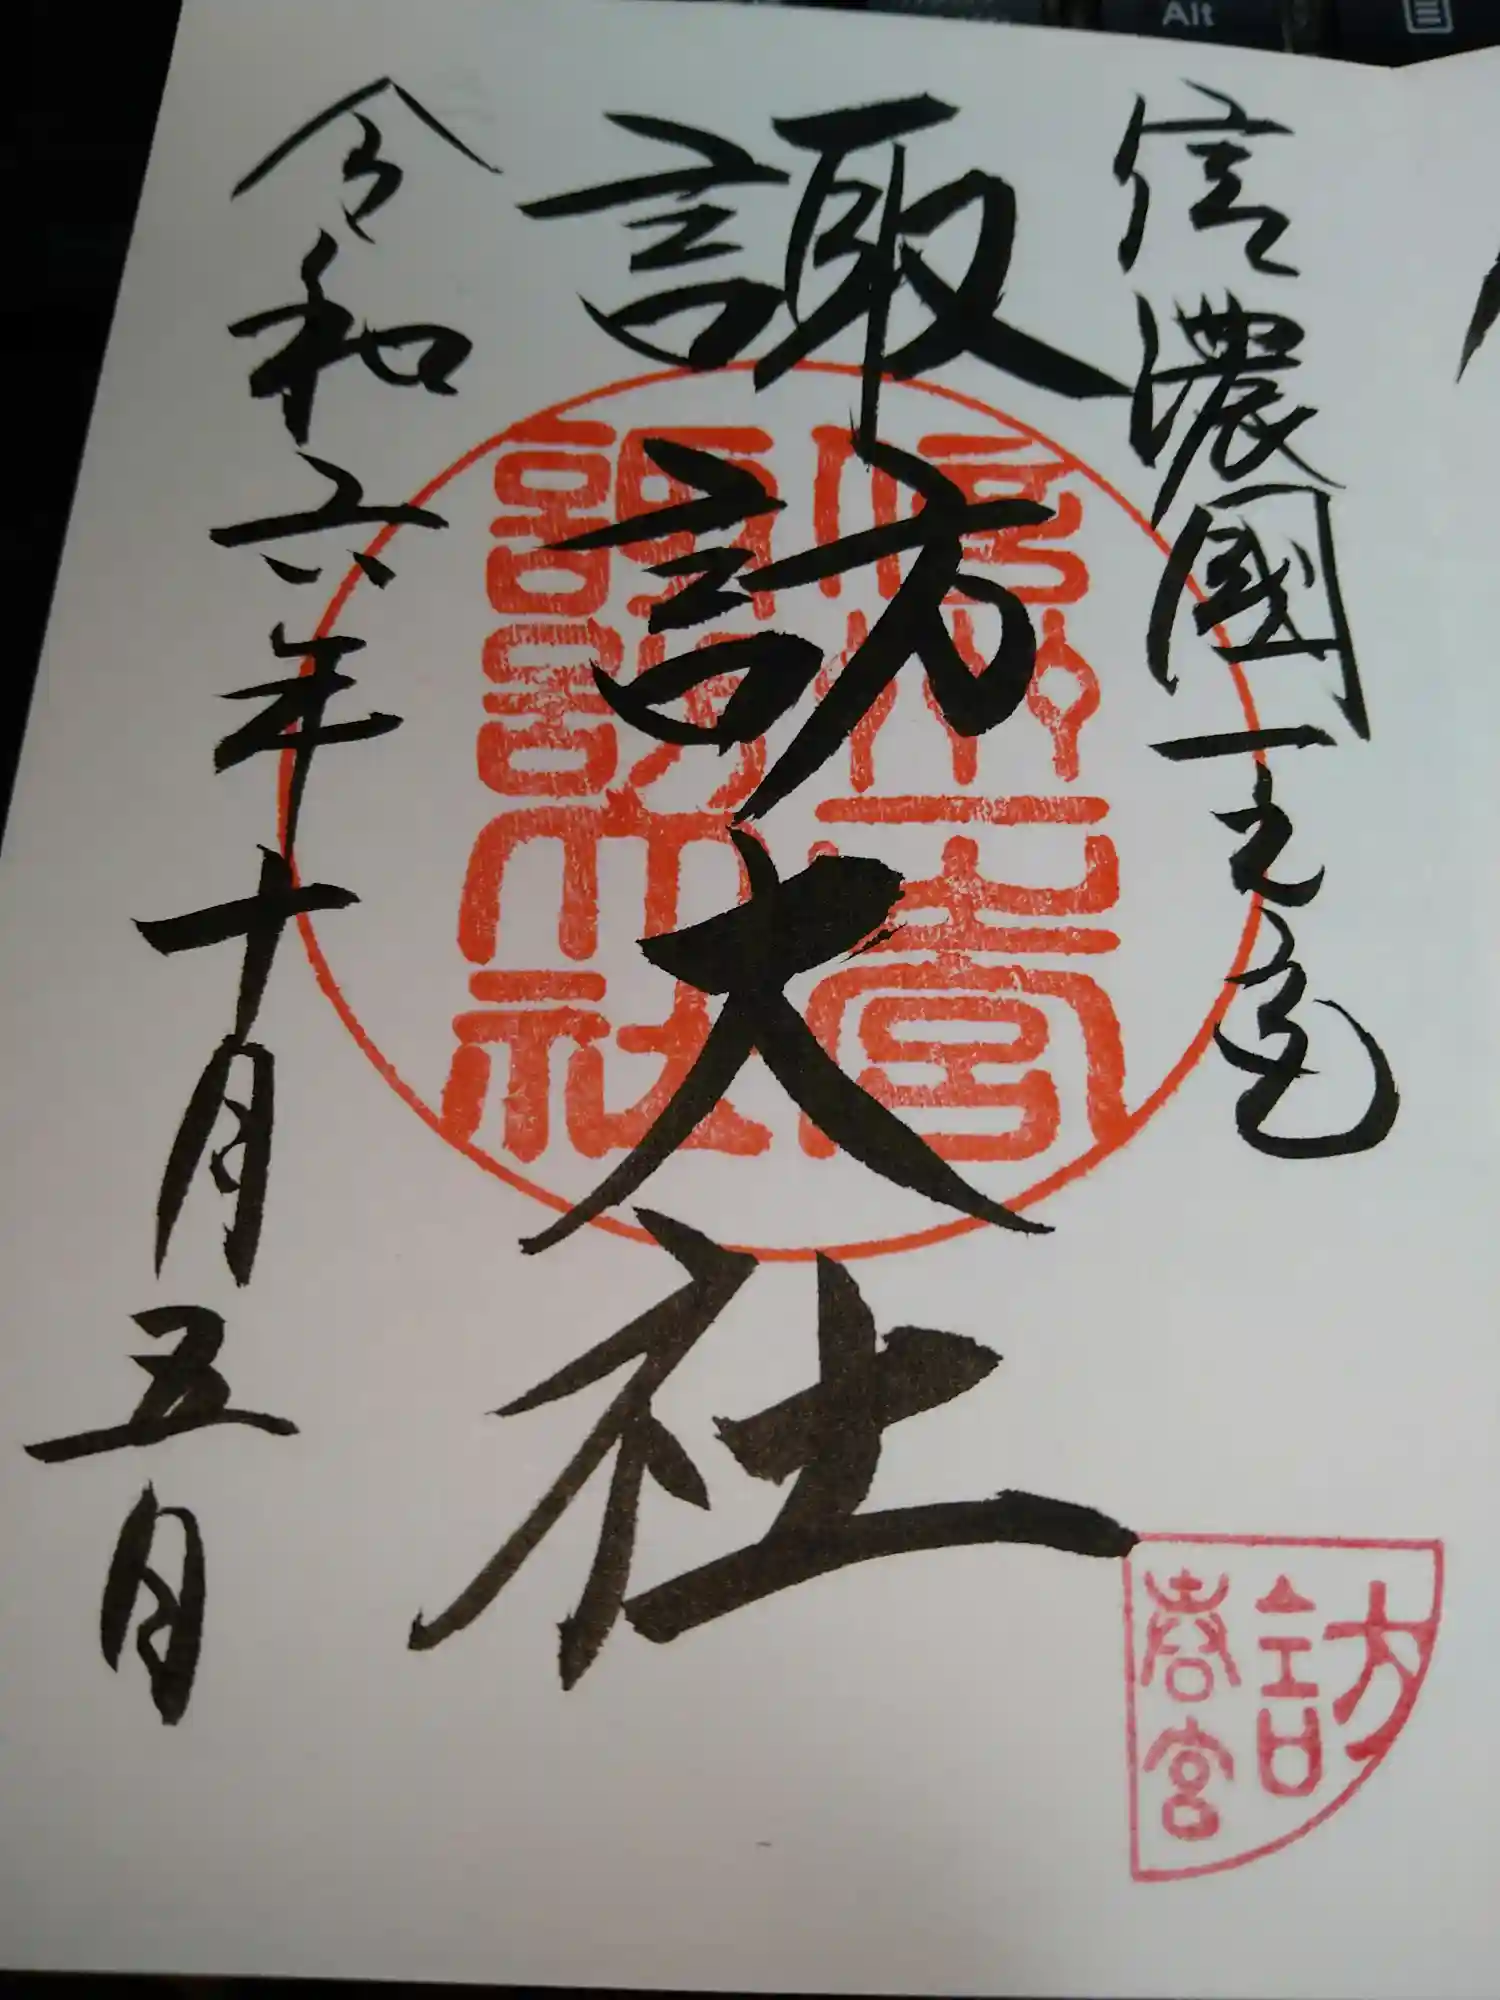 信濃國一之宮
諏訪大社
令和六年十月五日
信州一之宮
諏訪大社
諏訪
春宮
Alt